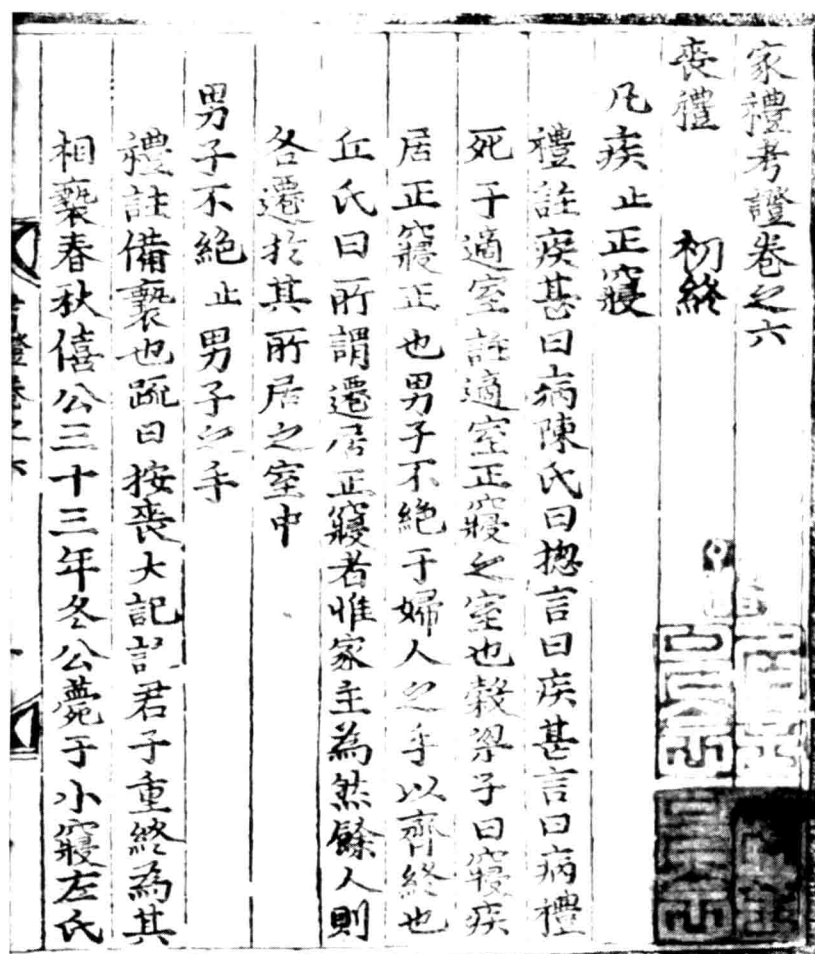 家禮考證卷之六
喪禮 初終
凡疾止正寢
禮註疾甚曰病陳氏曰揔言曰疾甚言曰病禮
死于適室註適室正寢之室也糓梁子曰寢疾
居正寢正也男子不絶于婦人之手以齊終也
丘氏曰所謂遷居正寢者惟家主為然餘人則
各遷於其所居之室中
男子不絶止男子之手
禮註備褻也䟽曰按喪大記註君子重終為其
相褻春秋僖公三十三年冬公薨于小寢左氏
考證卷之六